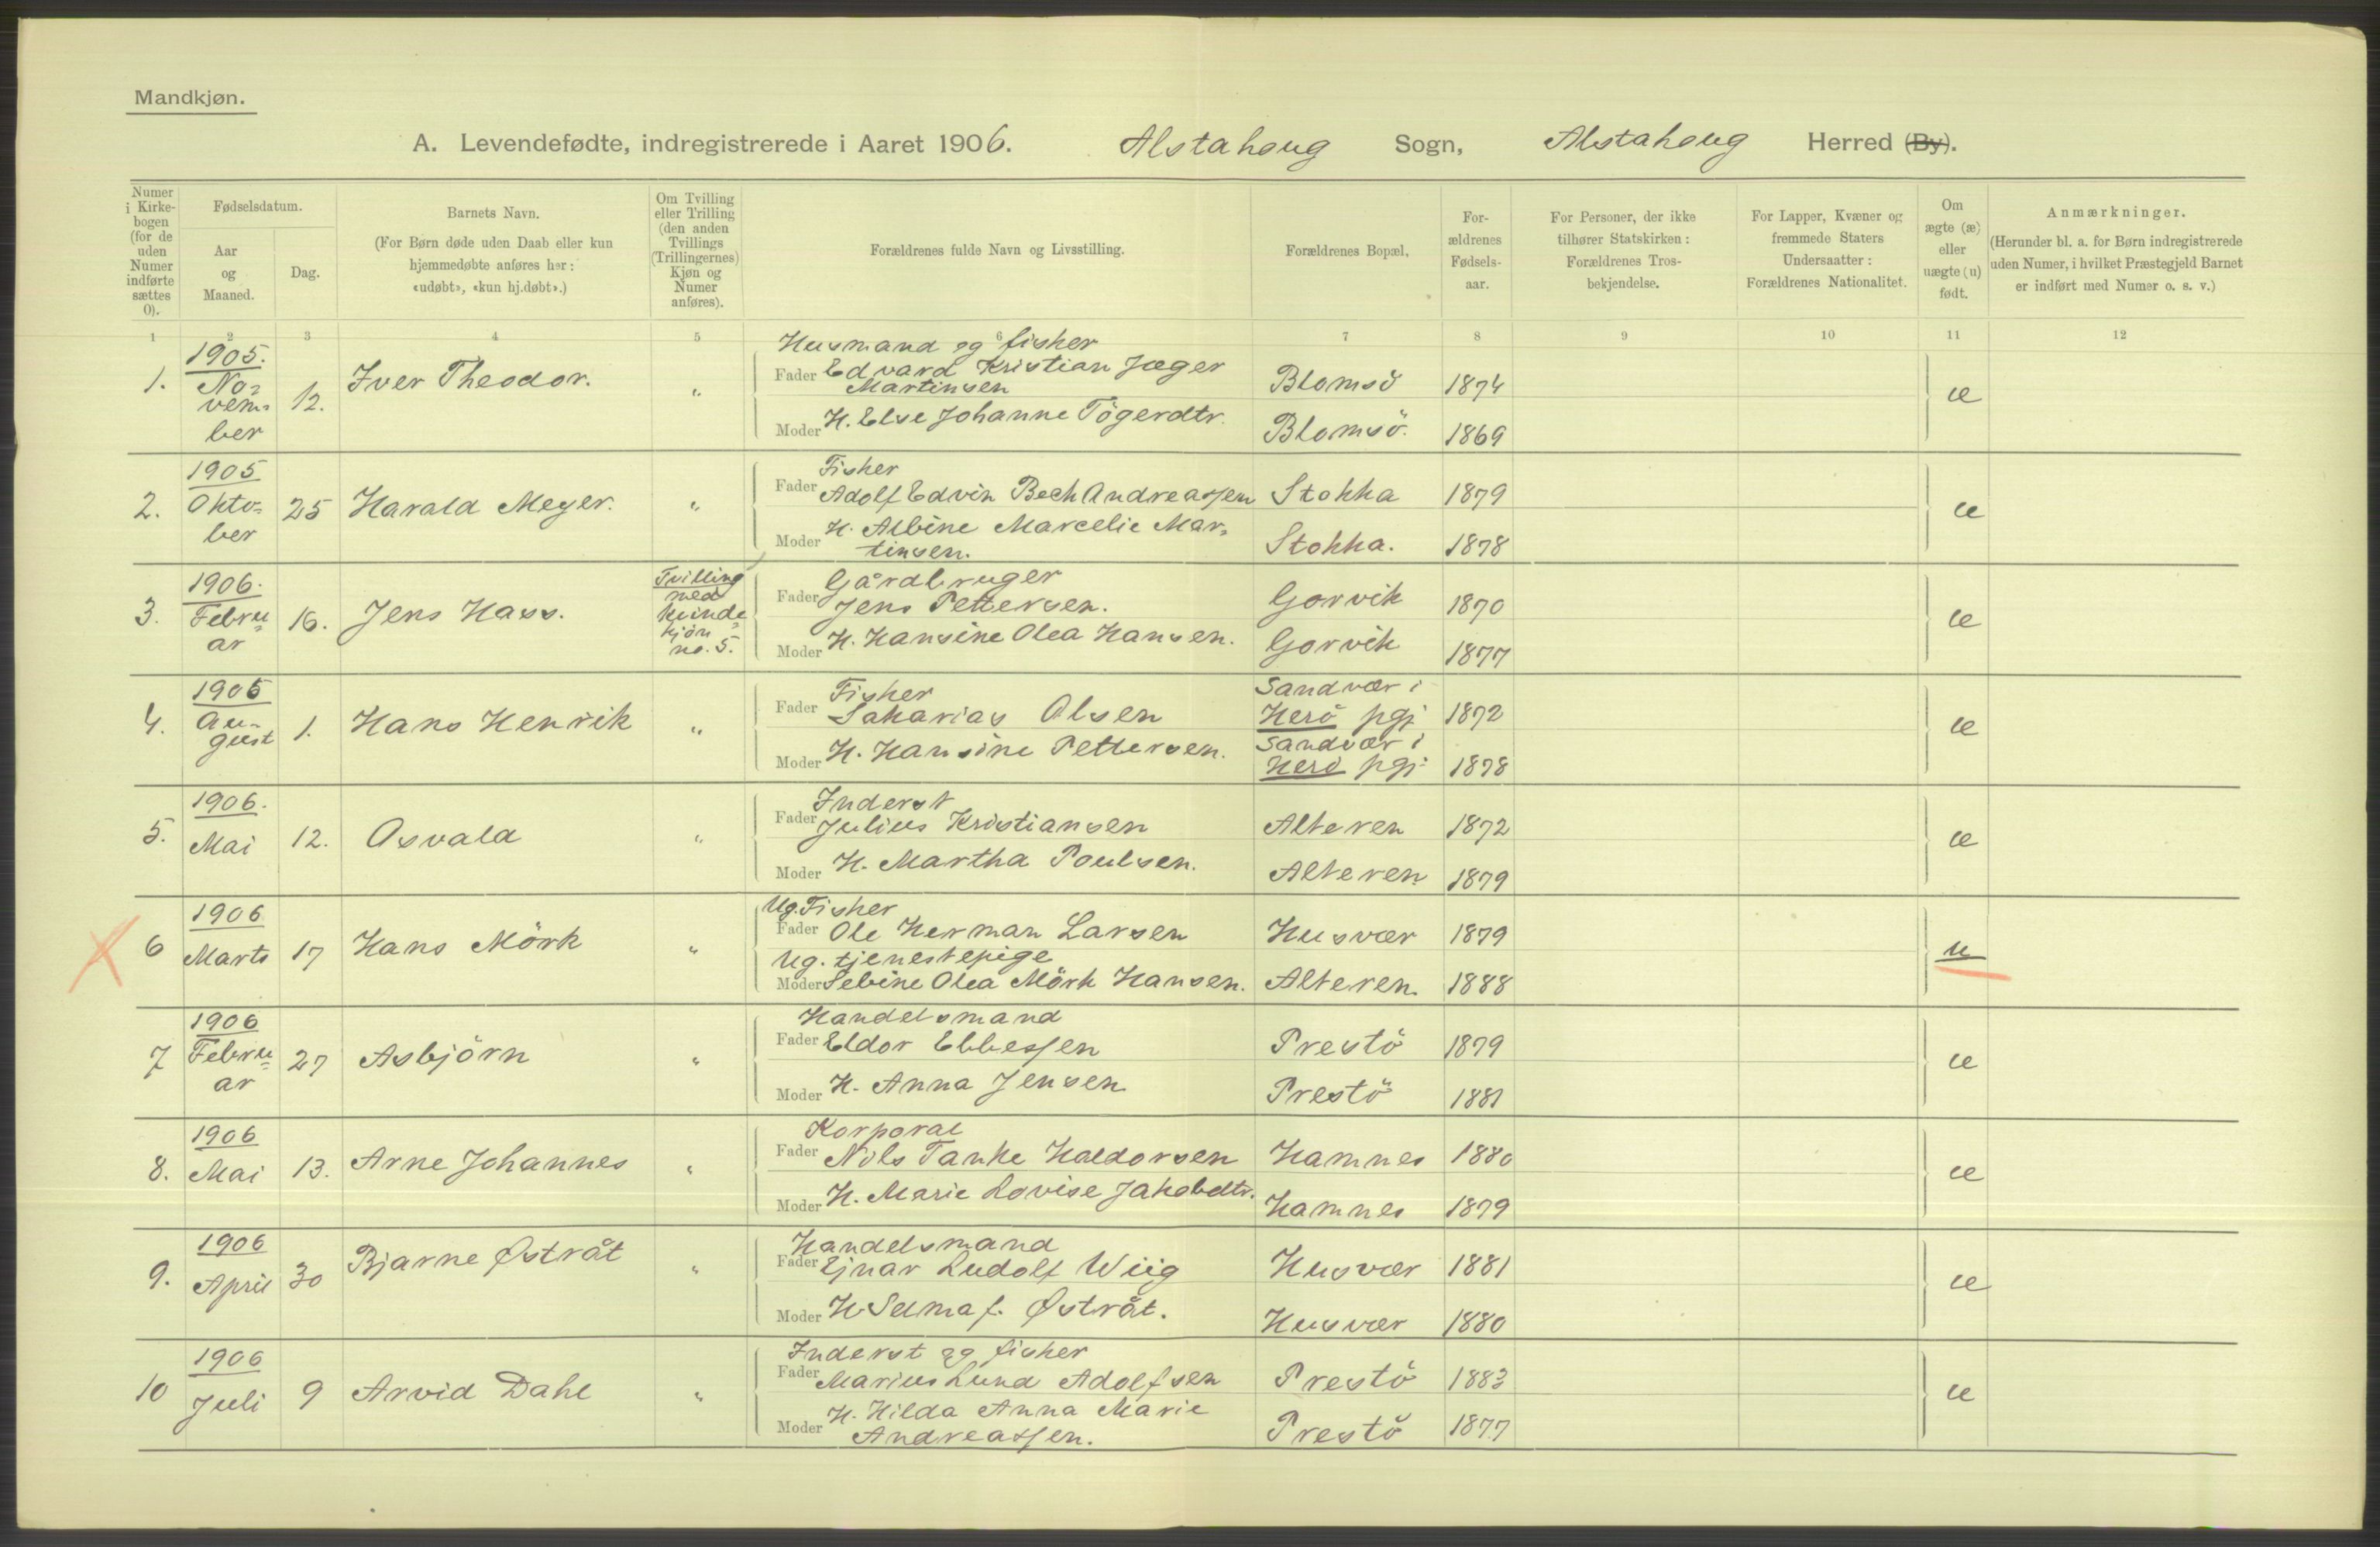 Mandkjøn.
A. Levendefødte, indregistrerede i Aaret 1906. Alstahoug Sogn, Alstahoug Herred (By).
Numer i Kirkebogen (for de uden Numer indførte sættes 0).
Fødselsdatum.
Aar og Maaned.
Dag.
Barnets Navn.
(For Børn døde uden Daab eller kun hjemmedøbte anføres her: «udøbt», «kun hj.døbt».)
Om Tvilling eller Trilling (den anden Tvillings (Trillingernes) Kjøn og Numer anføres).
Forældrenes fulde Navn og Livsstilling.
Forældrenes Bopæl.
Forældrenes Fødselsaar.
For Personer, der ikke tilhører Statskirken: Forældrenes Trosbekjendelse.
For Lapper, Kvæner og fremmede Staters Undersaatter: Forældrenes Nationalitet.
Om ægte (æ) eller uægte (u) født.
Anmærkninger.
(Herunder bl. a. for Børn indregistrerede uden Numer, i hvilket Præstegjeld Barnet er indført med Numer o. s. v.)
1 2 3 4 5 6 7 8 9 10 11 12
1. 1905. No-vem-ber 12. Iver Theodor. „
Husmand og fisker
Fader Edvard Kristian Jæger Martinsen Blomsö 1874 æ
Moder H. Else Johanne Tögerdtr. Blomsö. 1869
2. 1905 Okto-ber 25 Harald Meyer. „
Fisker
Fader Adolf Edvin Bech Andreassen Stokka 1879 æ
Moder H. Albine Marcelie Mar-tinsen. Stokka. 1878
3. 1906. Febru-ar 16. Jens Hass. Tvilling med kvinde-kjön no. 5.
Gårdbruger
Fader Jens Pettersen. Gorvik 1870 æ
Moder H. Hansine Olea Hansen. Gorvik 1877
4. 1905 Au-gust 1. Hans Henrik „
Fisker
Fader Sakarias Olsen Sandvær i Herö pgj 1872 æ
Moder H. Hansine Pettersen. Sandvær i Herö pgj. 1878
5. 1906. Mai 12. Osvald „
Inderst
Fader Julius Kristiansen Alteren 1872 æ
Moder H. Martha Poulsen. Alteren 1879
6 1906 Marts 17 Hans Mörk „
Ug. Fisker
Fader Ole Herman Larsen Husvær 1879 u
Ug. tjenestepige
Moder Sebine Olea Mörk Hansen. Alteren 1888
7 1906 Febru-ar 27 Asbjörn „
Handelsmand
Fader Eldor Ebbessen Prestö 1879 æ
Moder H. Anna Jensen Prestö 1881
8. 1906 Mai 13. Arne Johannes „
Korporal
Fader Nils Tanke Haldorsen Hamnes 1880 æ
Moder H. Marie Lovise Jakobdtr. Hamnes 1879
9. 1906 April 30 Bjarne Østråt „
Handelsmand
Fader Ejnar Ludolf Wiig Husvær 1881 æ
Moder H. Selma f. Østråt. Husvær 1880
10 1906 Juli 9 Arvid Dahl „
Inderst og fisker
Fader Marius Lund Adolfsen Prestö 1883 æ
Moder H. Hilda Anna Marie Andreassen. Prestö 1877